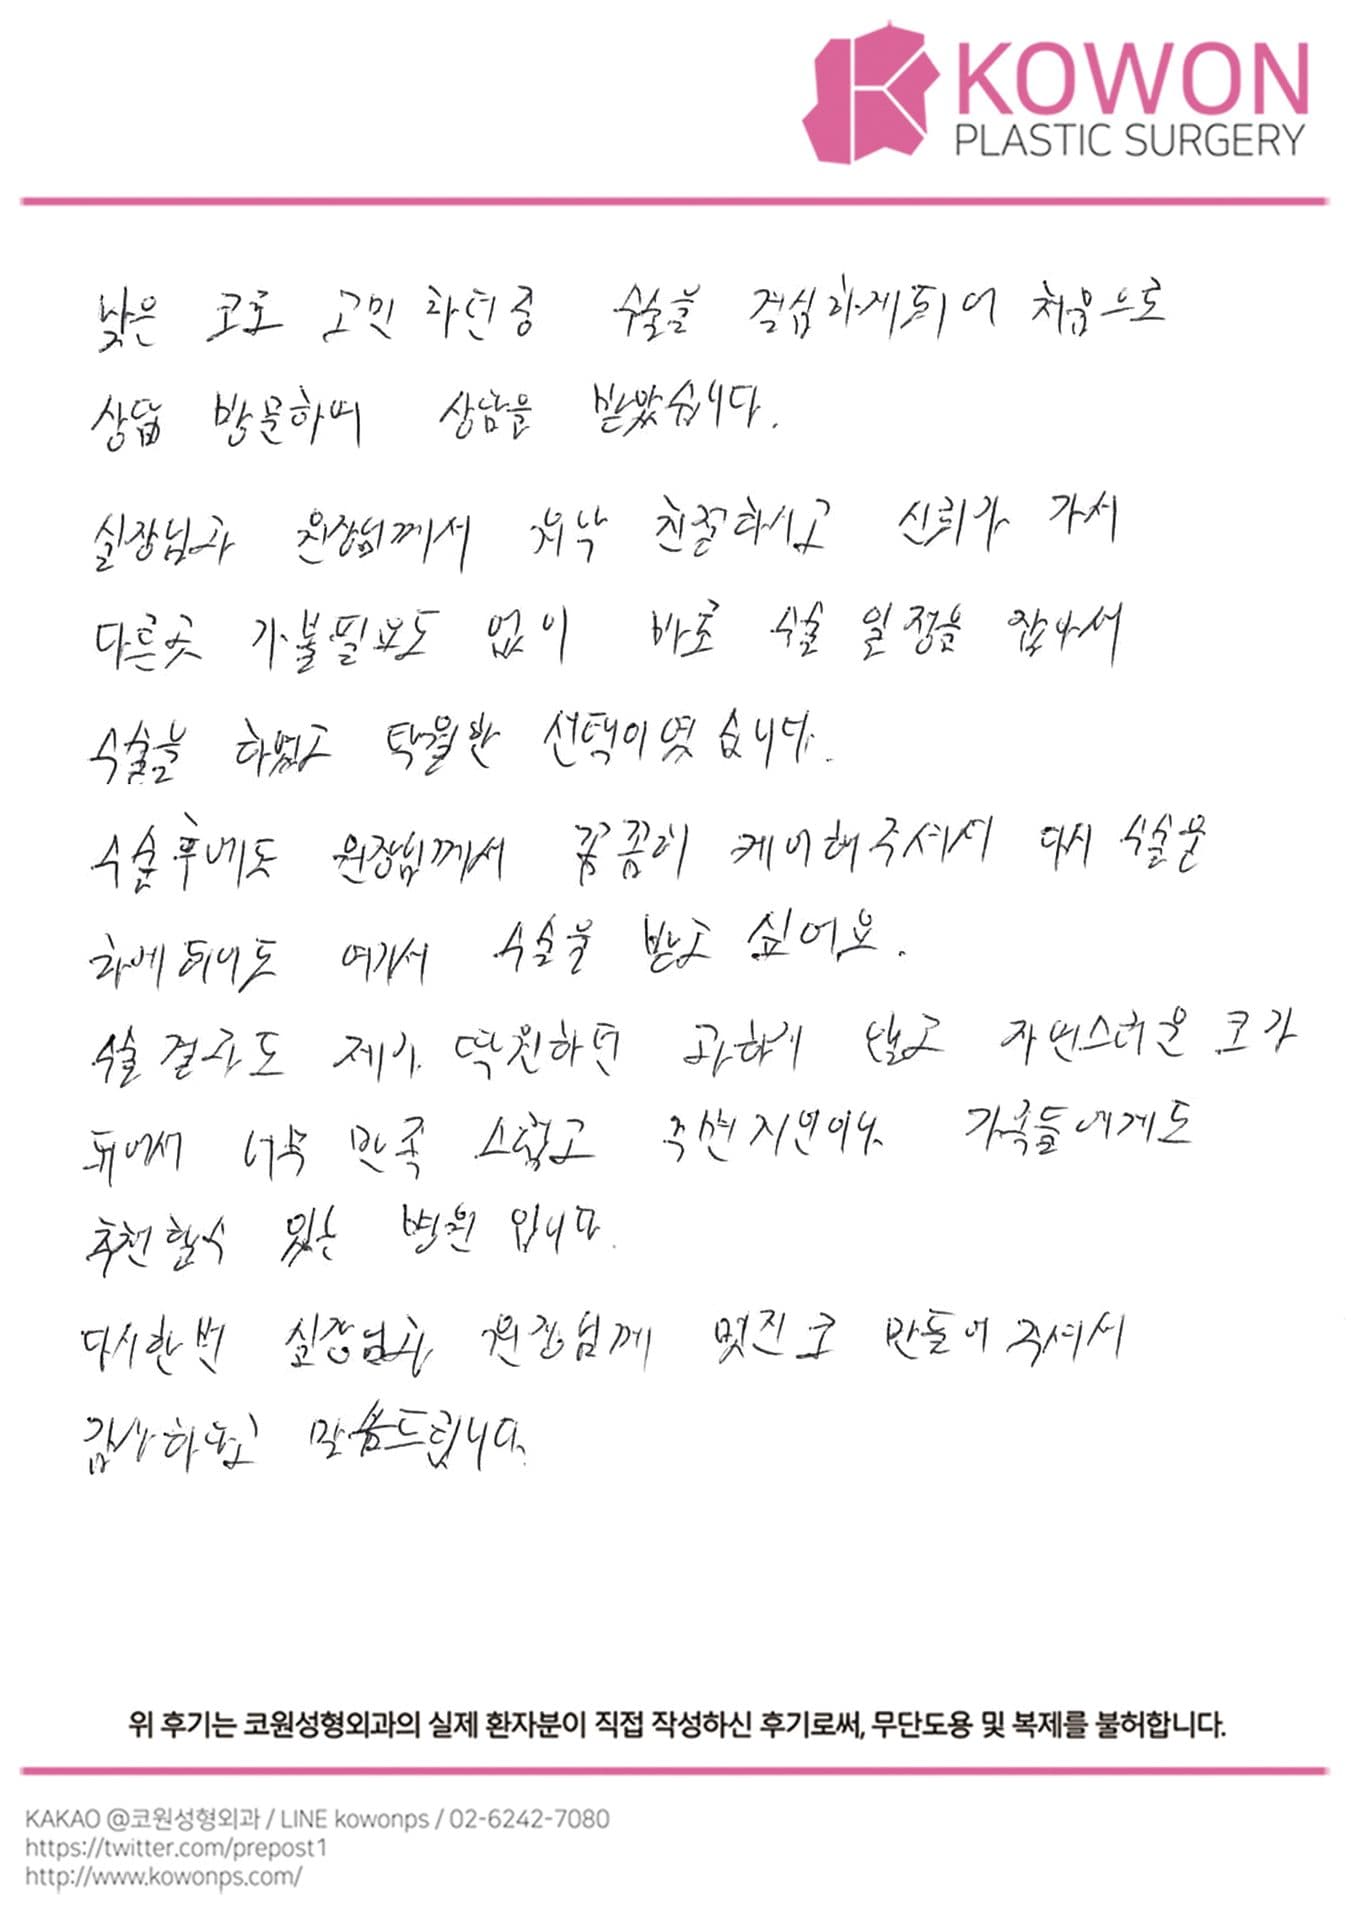 KOWON
PLASTIC SURGERY
낮은 코로 고민 하던중 수술을 결심하게되어 처음으로
상담 방문하며 상담을 받았습니다.
실장님과 원장님께서 워낙 친절하시고 신뢰가 가서
다른곳 가볼필요도 없이 바로 수술 일정을 잡아서
수술을 하였고 탁월한 선택이였습니다.
수술후에도 원장님께서 꼼꼼히 케어해주셔서 다시 수술을
하게되어도 여기서 수술을 받고 싶어요.
수술결과도 제가 딱원하던 과하게 않고 자연스러운 코가
되어서 너무 만족 스럽고 주변지인이나 가족들에게도
추천할수 있는 병원 입니다.
다시한번 실장님과 원장님께 멋진코 만들어 주셔서
감사하다고 말씀드립니다.
위 후기는 코원성형외과의 실제 환자분이 직접 작성하신 후기로써, 무단도용 및 복제를 불허합니다.
KAKAO @코원성형외과 / LINE kowonps / 02-6242-7080
https://twitter.com/prepost1
http://www.kowonps.com/